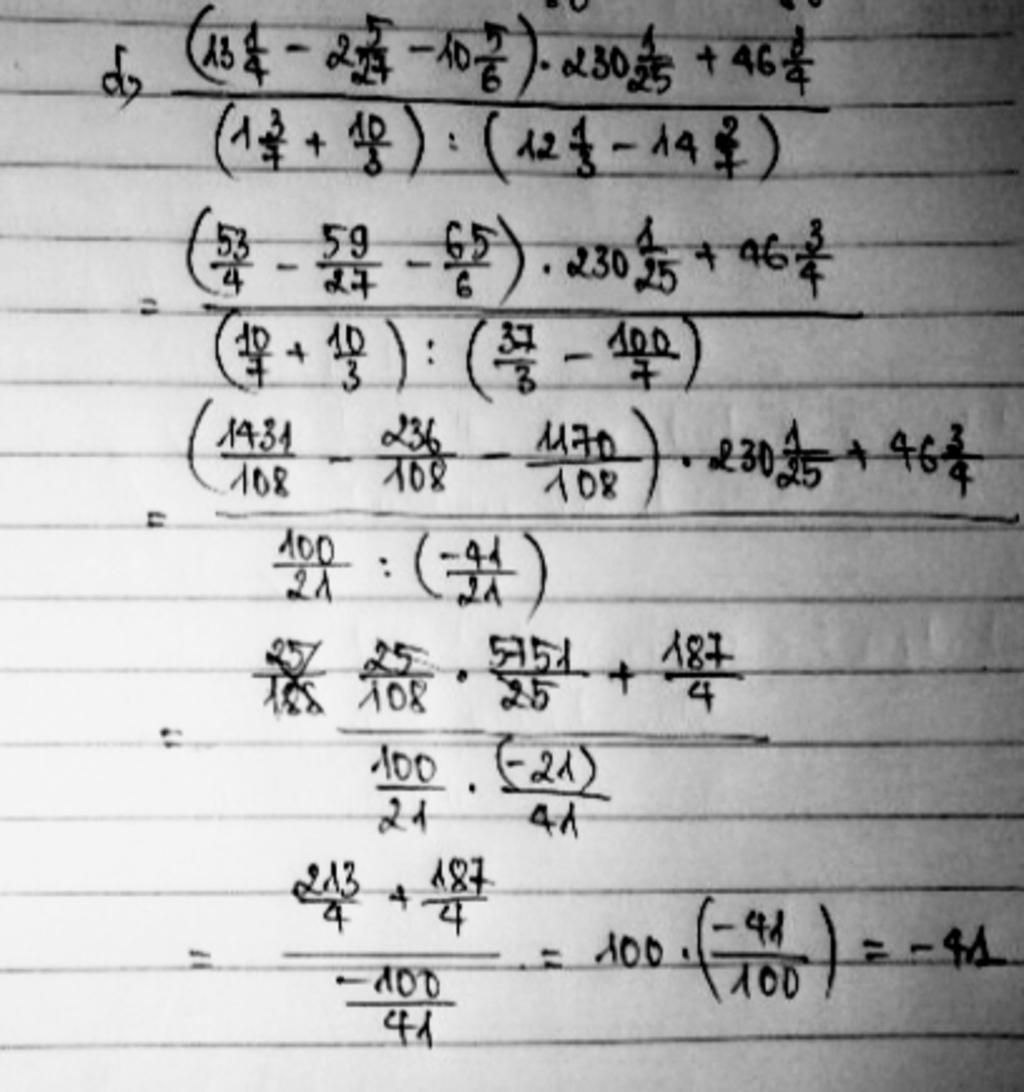 d, (13 1/4 - 2 5/27 - 10 5/6) . 230 1/25 + 46 3/4
(1 3/7 + 10/3) : (12 1/3 - 14 2/7)
= (53/4 - 59/27 - 65/6) . 230 1/25 + 46 3/4
(10/7 + 10/3) : (37/3 - 100/7)
= (1431/108 - 236/108 - 1170/108) . 230 1/25 + 46 3/4
100/21 : (-41/21)
= 25/108 25/108 . 5751/25 + 187/4
100/21 . (-21)/41
= 213/4 + 187/4
-100/41
= 100 . (-41/100) = -41